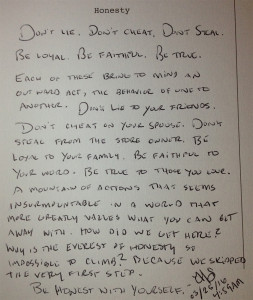 Honesty
Don't lie. Don't cheat. Don't steal.
Be loyal. Be faithful. Be true.
Each of these bring to mind an
outward act, the behavior of one to
another. Don't lie to your friends.
Don't cheat on your spouse. Don't
steal from the store owner. Be
loyal to your family. Be faithful to
your word. Be true to those you love.
A mountain of actions that seems
insurmountable in a world that
more greatly values what you can get
away with. How did we get here?
Why is the Everest of honesty so
impossible to climb? Because we skipped
the very first step.
Be honest with yourself.